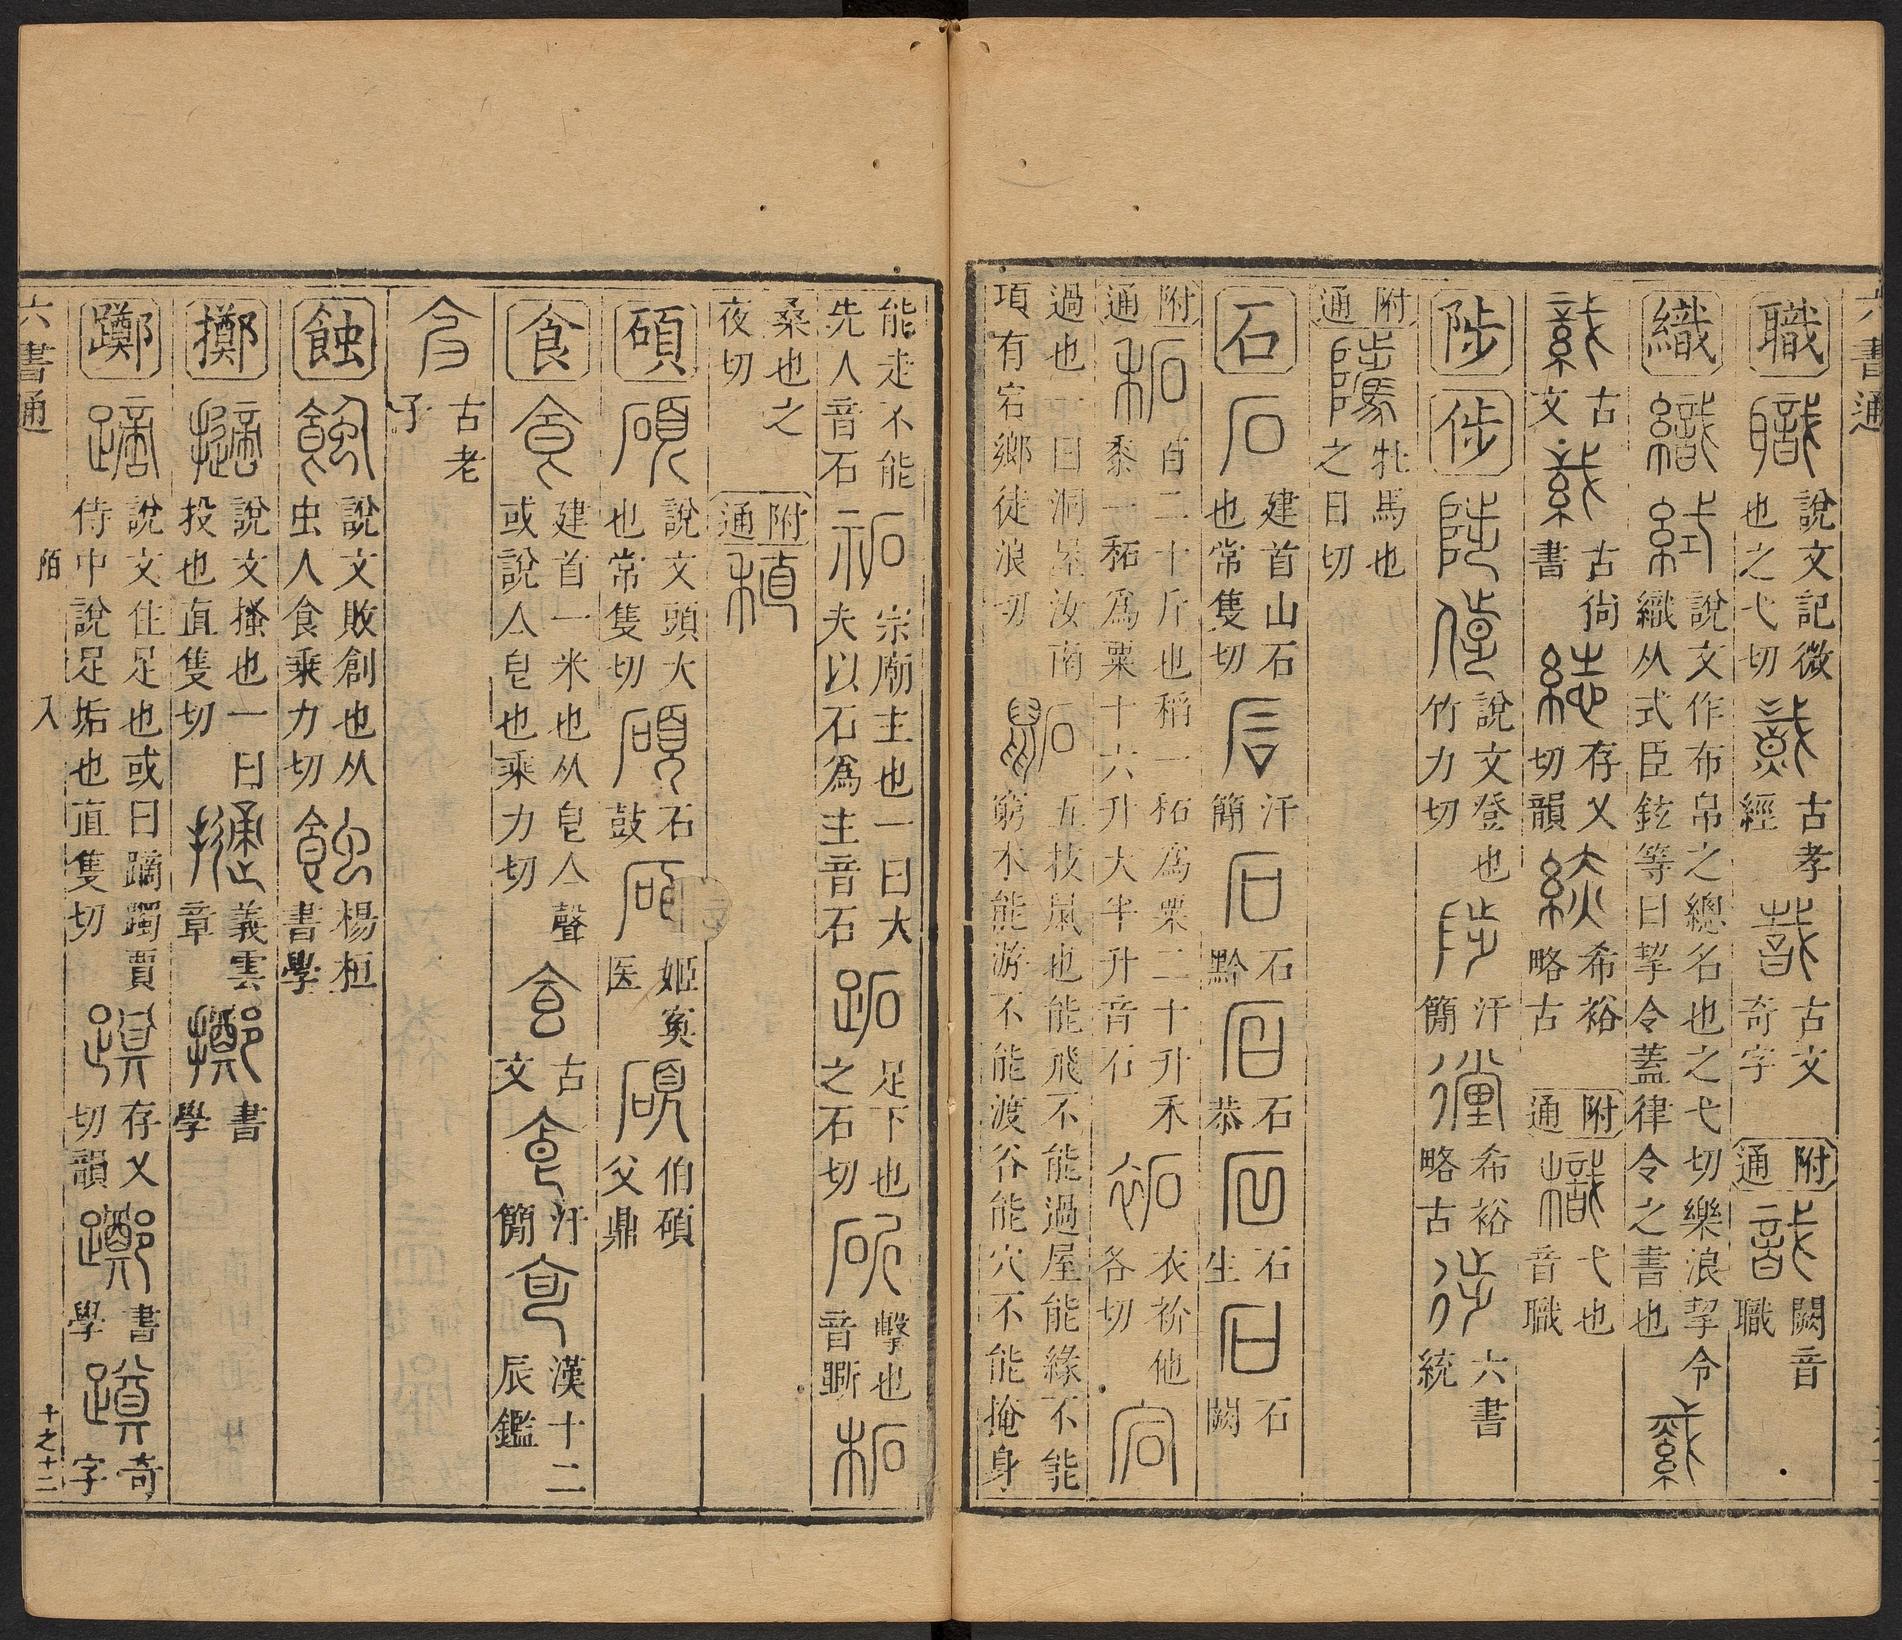 六書通
職 職 說文記微也之弋切 古孝經 古文奇字 附通 闕音職
織 織 說文作布帛之總名也之弋切樂浪挈令織从式臣鉉等曰挈令蓋律令之書也
古文 古尙書 存乂切韻 希裕略古 附通 樴 弋也音職
陟 㣥 陟 說文登也竹力切 汗簡 希裕略古 六書統
附通 騭 牡馬也之日切
石 石 建首山石也常隻切 汗簡 石黔 石恭 石生 石闕
附通 䄷 百二十斤也稻一䄷爲粟二十升禾黍一䄷爲粟十六升大半升音石 袥 衣䘨他各切 宕
過也一曰洞屋汝南項有宕鄉徒浪切 鼫 五技鼠也能飛不能過屋能緣不能窮木能游不能渡谷能穴不能掩身
能走不能先人音石 祏 宗廟主也一曰大夫以石爲主音石 跖 足下也之石切 斫 擊也音斲 柘
桑也之夜切 附通
碩 碩 說文頭大也常隻切 石鼓 姬寏医 伯碩父鼎
食 食 建首一米也从皀亼聲或說亼皀也乘力切 古文 汗簡 漢十二辰鑑
古老子
蝕 蝕 說文敗創也从虫人食乘力切 楊桓書學
擲 擿 說文搔也一曰投也直隻切 義雲章 書學
躑 蹢 說文住足也或曰蹢躅賈侍中說足垢也直隻切 存乂切韻 書學 奇字
六書通 陌 入 十之十二